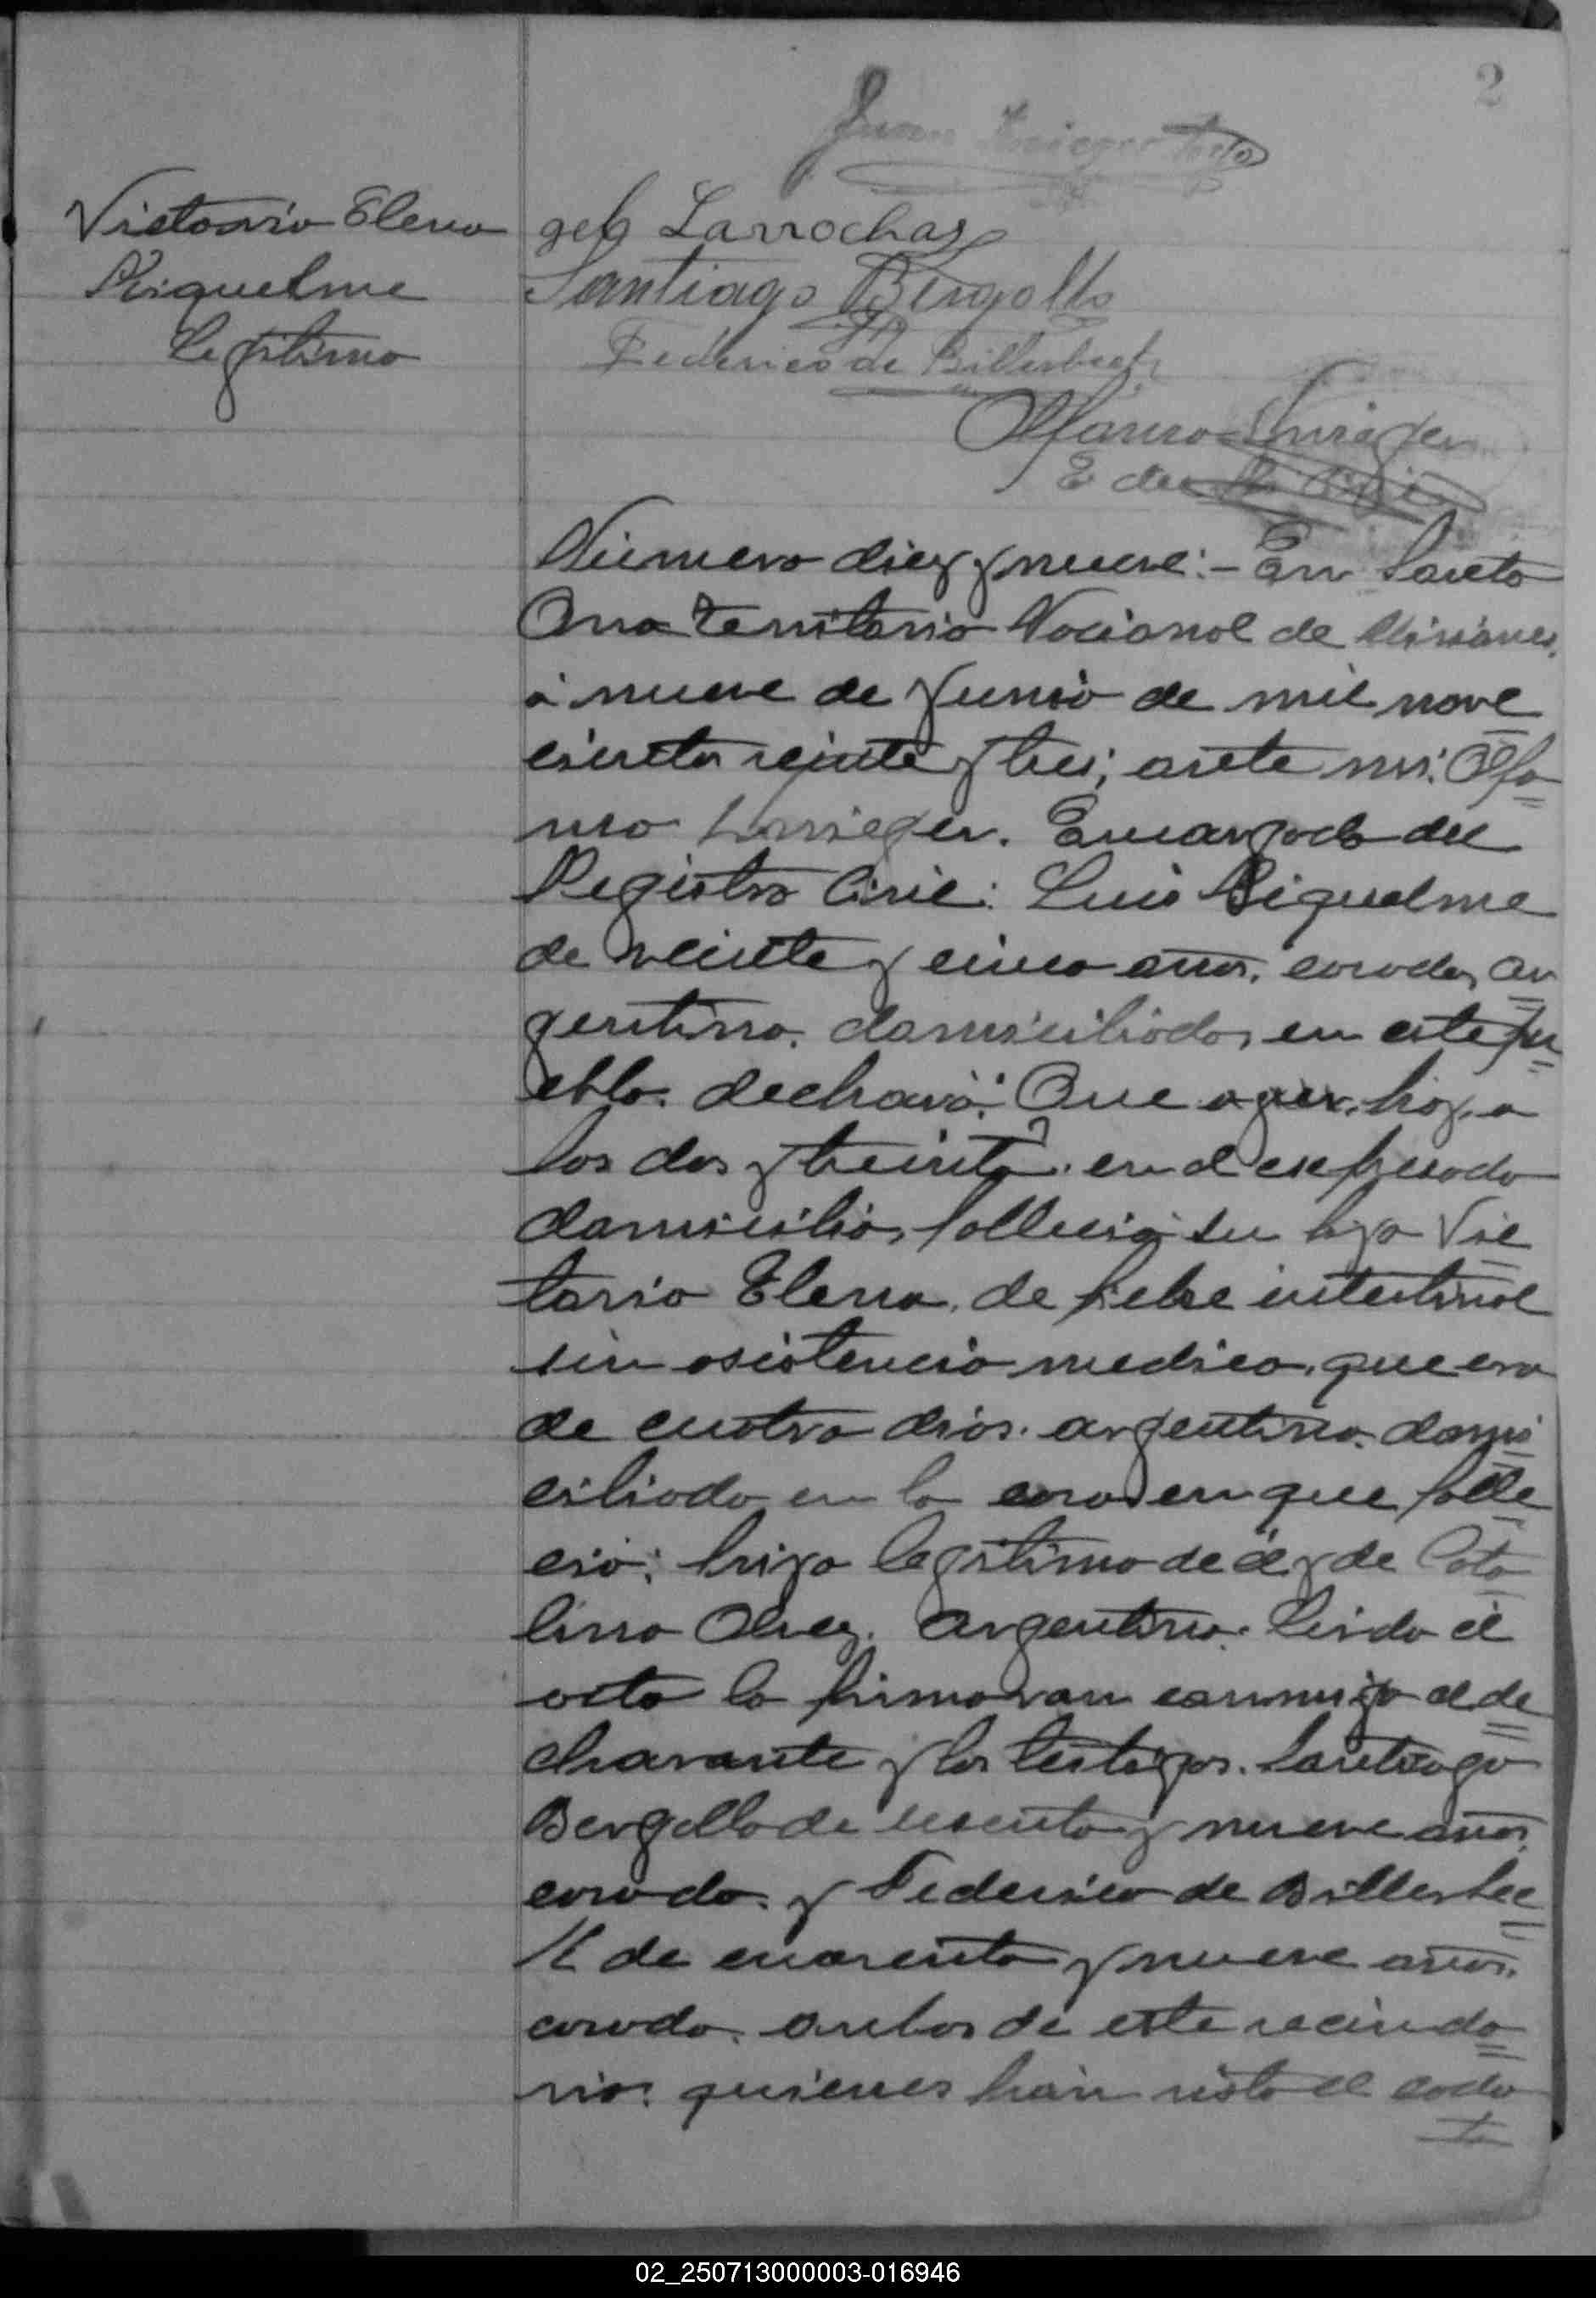 2
Juan
Victoria Elena
Riquelme
Legitima
geb Larrochas
Santiago Bergallo
Federico de Billerbeck
Número diez y nueve:- En Santa
Ana Territorio Nacional de Misiones,
á nueve de Junio de mil nove
cientos veinte y tres; ante mi: Alfo
nso Encargado del
Registro Civil: Luis Riquelme
de veinte y cinco años, casado, ar
gentino, domiciliado, en este pu
eblo. declaró: Que ayer, hoy, a
las dos y treinta, en el expresado
domicilio, falleció su hija Vic
toria Elena, de fiebre intestinal
sin asistencia medica, que era
de cuatro dias. argentina, domi
ciliada en la casa en que falle
ció: hija legitima de él y de Cata
lina Olvez. argentina. Leida el
acta la firmaran conmigo el de
clarante y los testigos. Santiago
Bergallo de sesenta y nueve años,
casado. y Federico de Billerbec
k de cuarenta y nueve años,
casado. ambos de este vecinda
rio. quienes han visto el cada
02_250713000003-016946